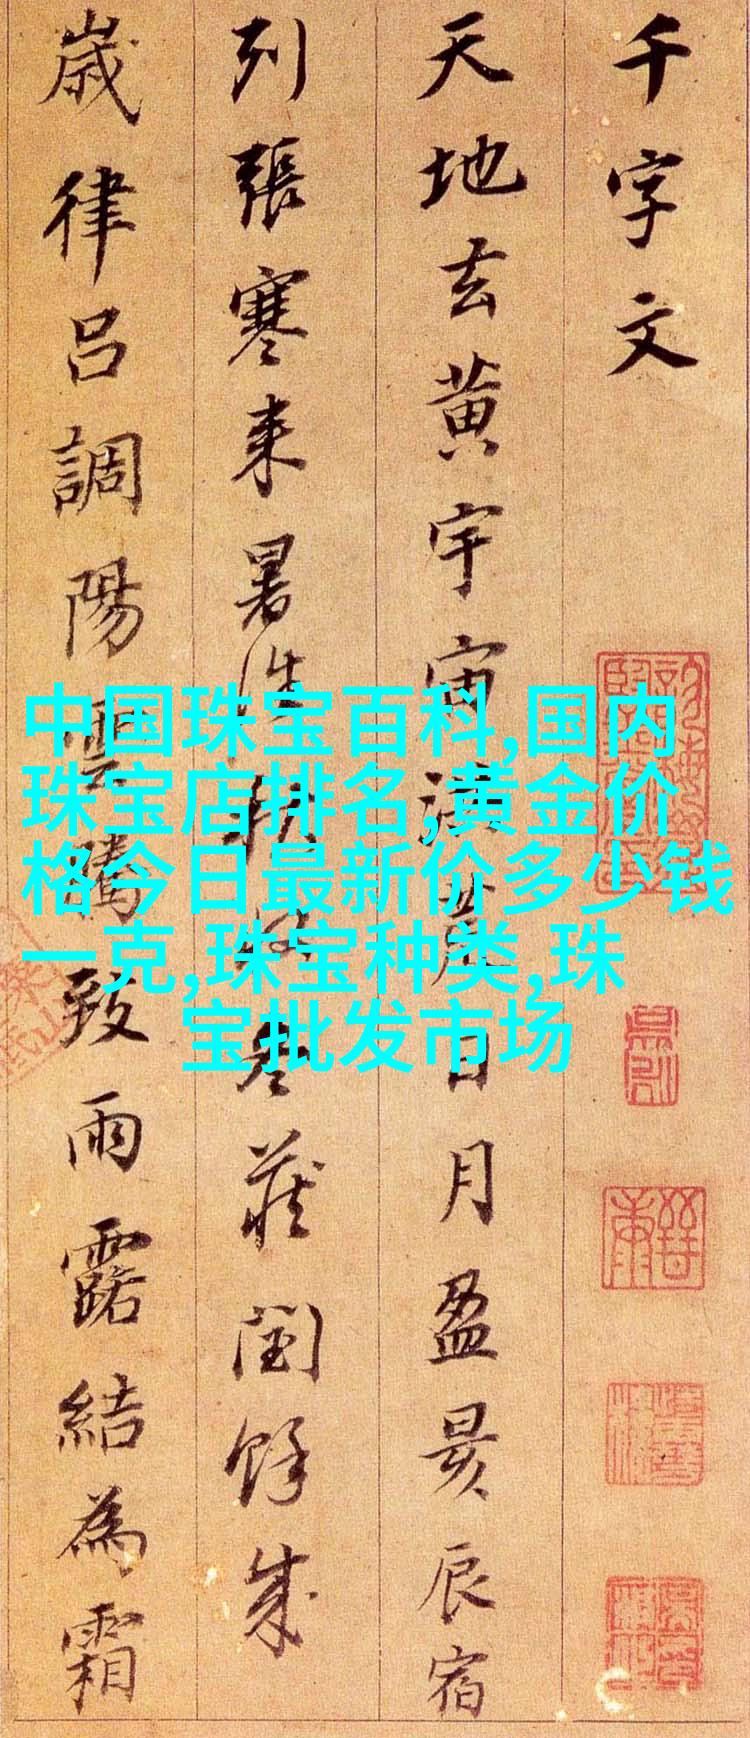 千字文
天地玄黄宇宙洪荒日月盈昃辰宿
列張寒来暑往秋收冬蔵閏餘成
歳律吕調陽雲騰致雨露結為霜
中国珠宝百科,国内
珠宝店排名,黄金价
格今日最新价多少钱
一克,珠宝种类,珠
宝批发市场